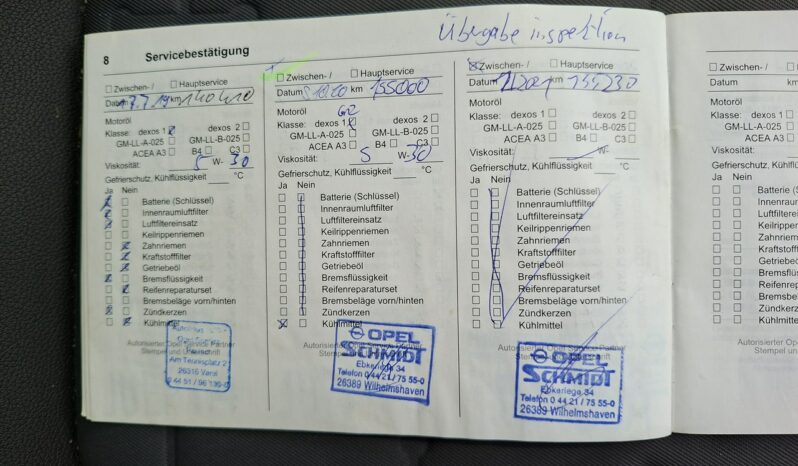 Übergabe inspektion
8 Servicebestätigung
Zwischen- / Hauptservice
Datum 17.7.19 km 140410
Motoröl
Klasse: dexos 1 dexos 2
GM-LL-A-025 GM-LL-B-025
ACEA A3 B4 C3
Viskosität: 5 W- 30
Gefrierschutz, Kühlflüssigkeit °C
Ja Nein
Batterie (Schlüssel)
Innenraumluftfilter
Luftfiltereinsatz
Keilrippenriemen
Zahnriemen
Kraftstofffilter
Getriebeöl
Bremsflüssigkeit
Reifenreparaturset
Bremsbeläge vorn/hinten
Zündkerzen
Kühlmittel
Autorisierter Opel Service Partner
Stempel und Unterschrift
Am Tennisplatz 2
26316 Varel
Zwischen- / Hauptservice
Datum km 155000
Motoröl
Klasse: dexos 1 dexos 2
GM-LL-A-025 GM-LL-B-025
ACEA A3 B4 C3
Viskosität: 5 W- 30
Gefrierschutz, Kühlflüssigkeit °C
Ja Nein
Batterie (Schlüssel)
Innenraumluftfilter
Luftfiltereinsatz
Keilrippenriemen
Zahnriemen
Kraftstofffilter
Getriebeöl
Bremsflüssigkeit
Reifenreparaturset
Bremsbeläge vorn/hinten
Zündkerzen
Kühlmittel
Autorisierter Opel Service Partner
Stempel
OPEL
SCHMIDT
Ebkeriege 34
Telefon 0 44 21 / 75 55-0
26389 Wilhelmshaven
Zwischen- / Hauptservice
Datum km 155230
Motoröl
Klasse: dexos 1 dexos 2
GM-LL-A-025 GM-LL-B-025
ACEA A3 B4 C3
Viskosität: W-
Gefrierschutz, Kühlflüssigkeit °C
Ja Nein
Batterie (Schlüssel)
Innenraumluftfilter
Luftfiltereinsatz
Keilrippenriemen
Zahnriemen
Kraftstofffilter
Getriebeöl
Bremsflüssigkeit
Reifenreparaturset
Bremsbeläge vorn/hinten
Zündkerzen
Kühlmittel
Autorisierter Opel Service Partner
Stempel und Unterschrift
OPEL
SCHMIDT
Ebkeriege 34
Telefon 0 44 21 / 75 55-0
26389 Wilhelmshaven
Zwischen-
Datum
Motoröl
Klasse: dex
GM-LL-A
ACE
Viskosität:
Gefrierschutz,
Ja Nein
Ba
In
L
K
Z
Autori
Ste